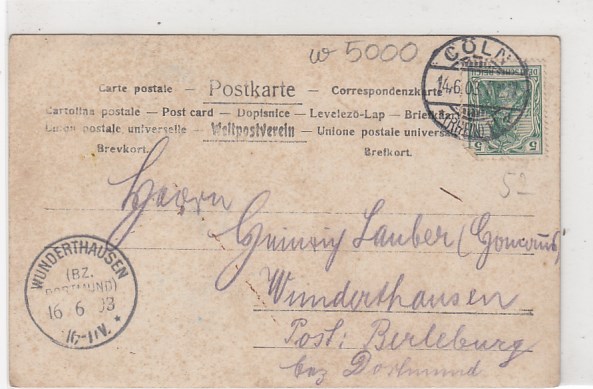 w 5000
CÖLN
14.6.03
DEUTSCHES REICH
5 5
52
Carte postale — Postkarte — Correspondenzkarte
Cartolina postale — Post card — Dopisnice — Levelező-Lap — Briefkaart
Union postale universelle — Weltpostverein — Unione postale universale
Brevkort. Brefkort.
Herrn
Heinrich Lauber
Wunderthausen
Post: Berleburg
bez Dortmund
WUNDERTHAUSEN
(BZ. DORTMUND)
16 6 03